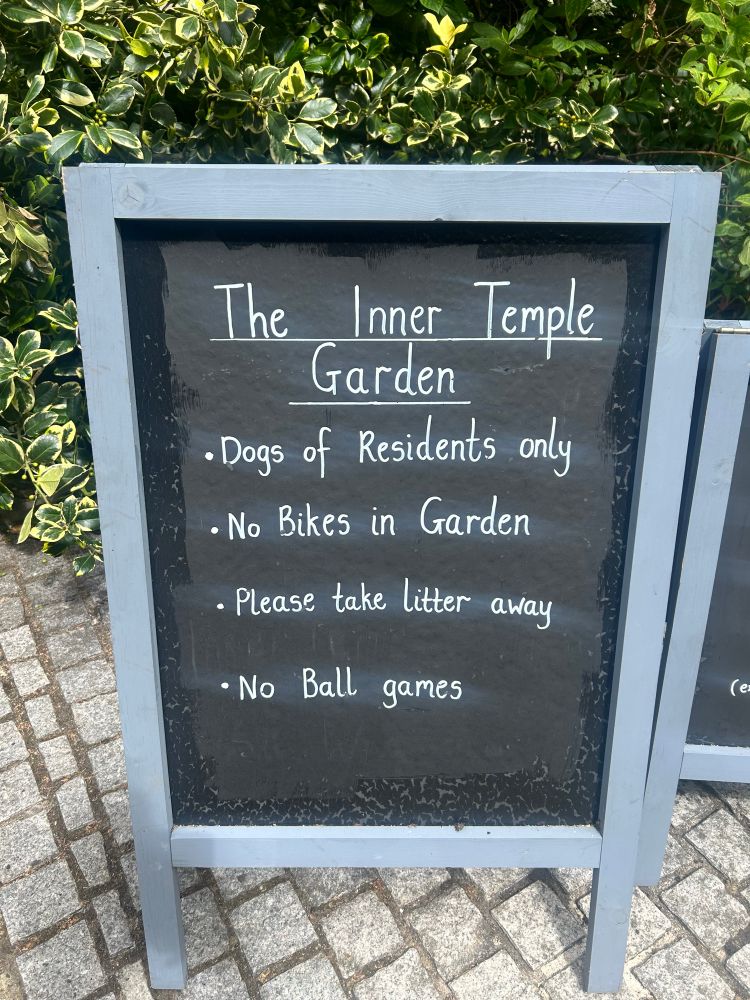 The Inner Temple
Garden
• Dogs of Residents only
• No Bikes in Garden
• Please take litter away
• No Ball games